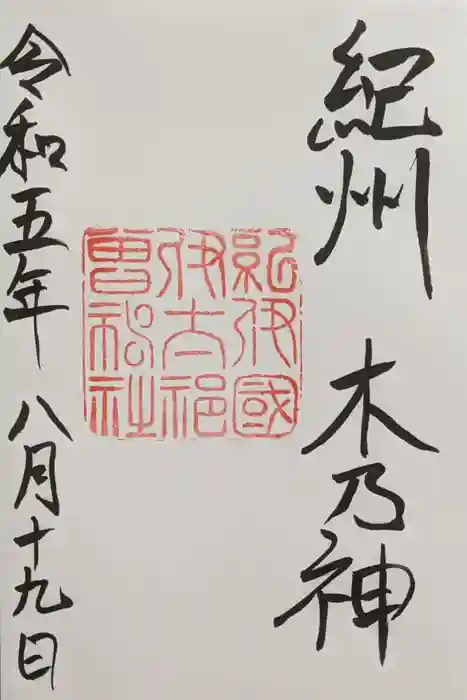 紀州 木乃神
紀伊國
伊太祁
曾神社
令和五年 八月十九日